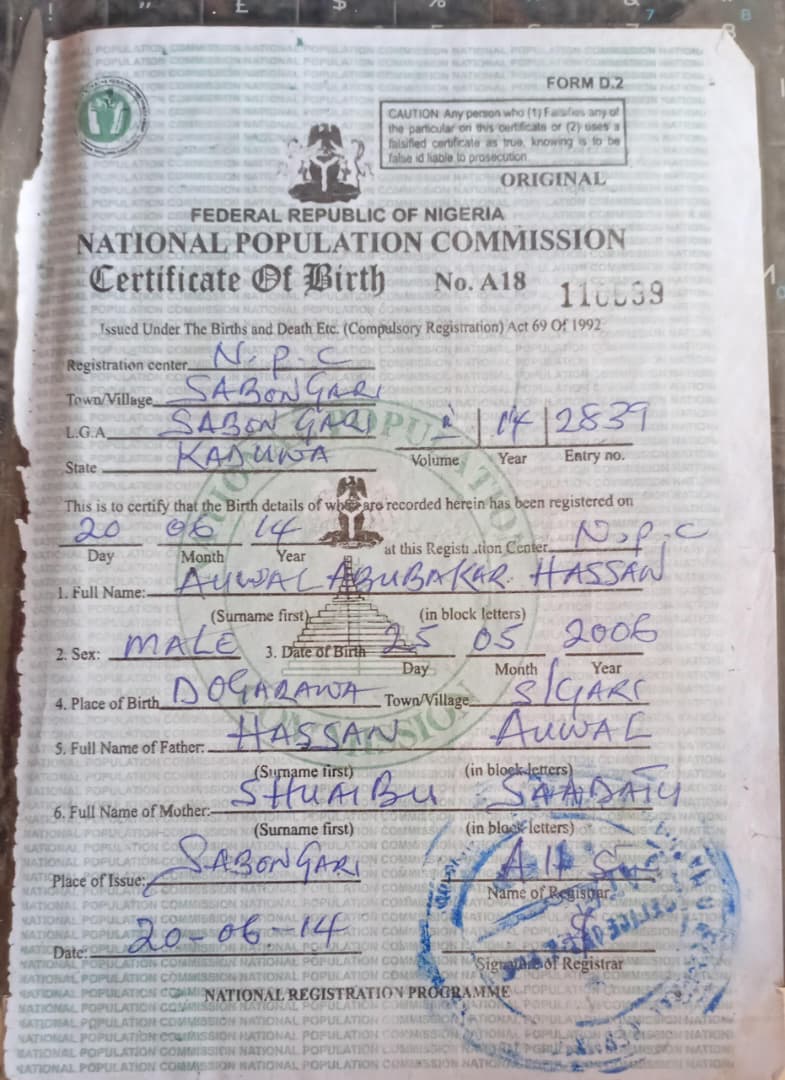 FORM D.2
CAUTION: Any person who (1) Falsifies any of
the particular on this certificate or (2) uses a
falsified certificate as true, knowing is to be
false id liable to prosecution
ORIGINAL
FEDERAL REPUBLIC OF NIGERIA
NATIONAL POPULATION COMMISSION
Certificate Of Birth No. A18
Issued Under The Births and Death Etc. (Compulsory Registration) Act 69 Of 1992
Registration center N.P.C
Town/Village SABON GARI
L.G.A SABON GARI 14 2839
State KADUNA Volume Year Entry no.
This is to certify that the Birth details of who are recorded herein has been registered on
20 06 14 at this Registration Center N.P.C
Day Month Year
1. Full Name: AUWAL ABUBAKAR HASSAN
(Surname first) (in block letters)
2. Sex: MALE 3. Date of Birth 25 05 2006
Day Month Year
4. Place of Birth DOGARAWA Town/Village S/GARI
5. Full Name of Father: HASSAN AUWAL
(Surname first) (in block letters)
6. Full Name of Mother: SHUAIBU SAADATU
(Surname first) (in block letters)
Place of Issue: SABON GARI
Name of Registrar
Date: 20-06-14
Signature of Registrar
NATIONAL REGISTRATION PROGRAMME